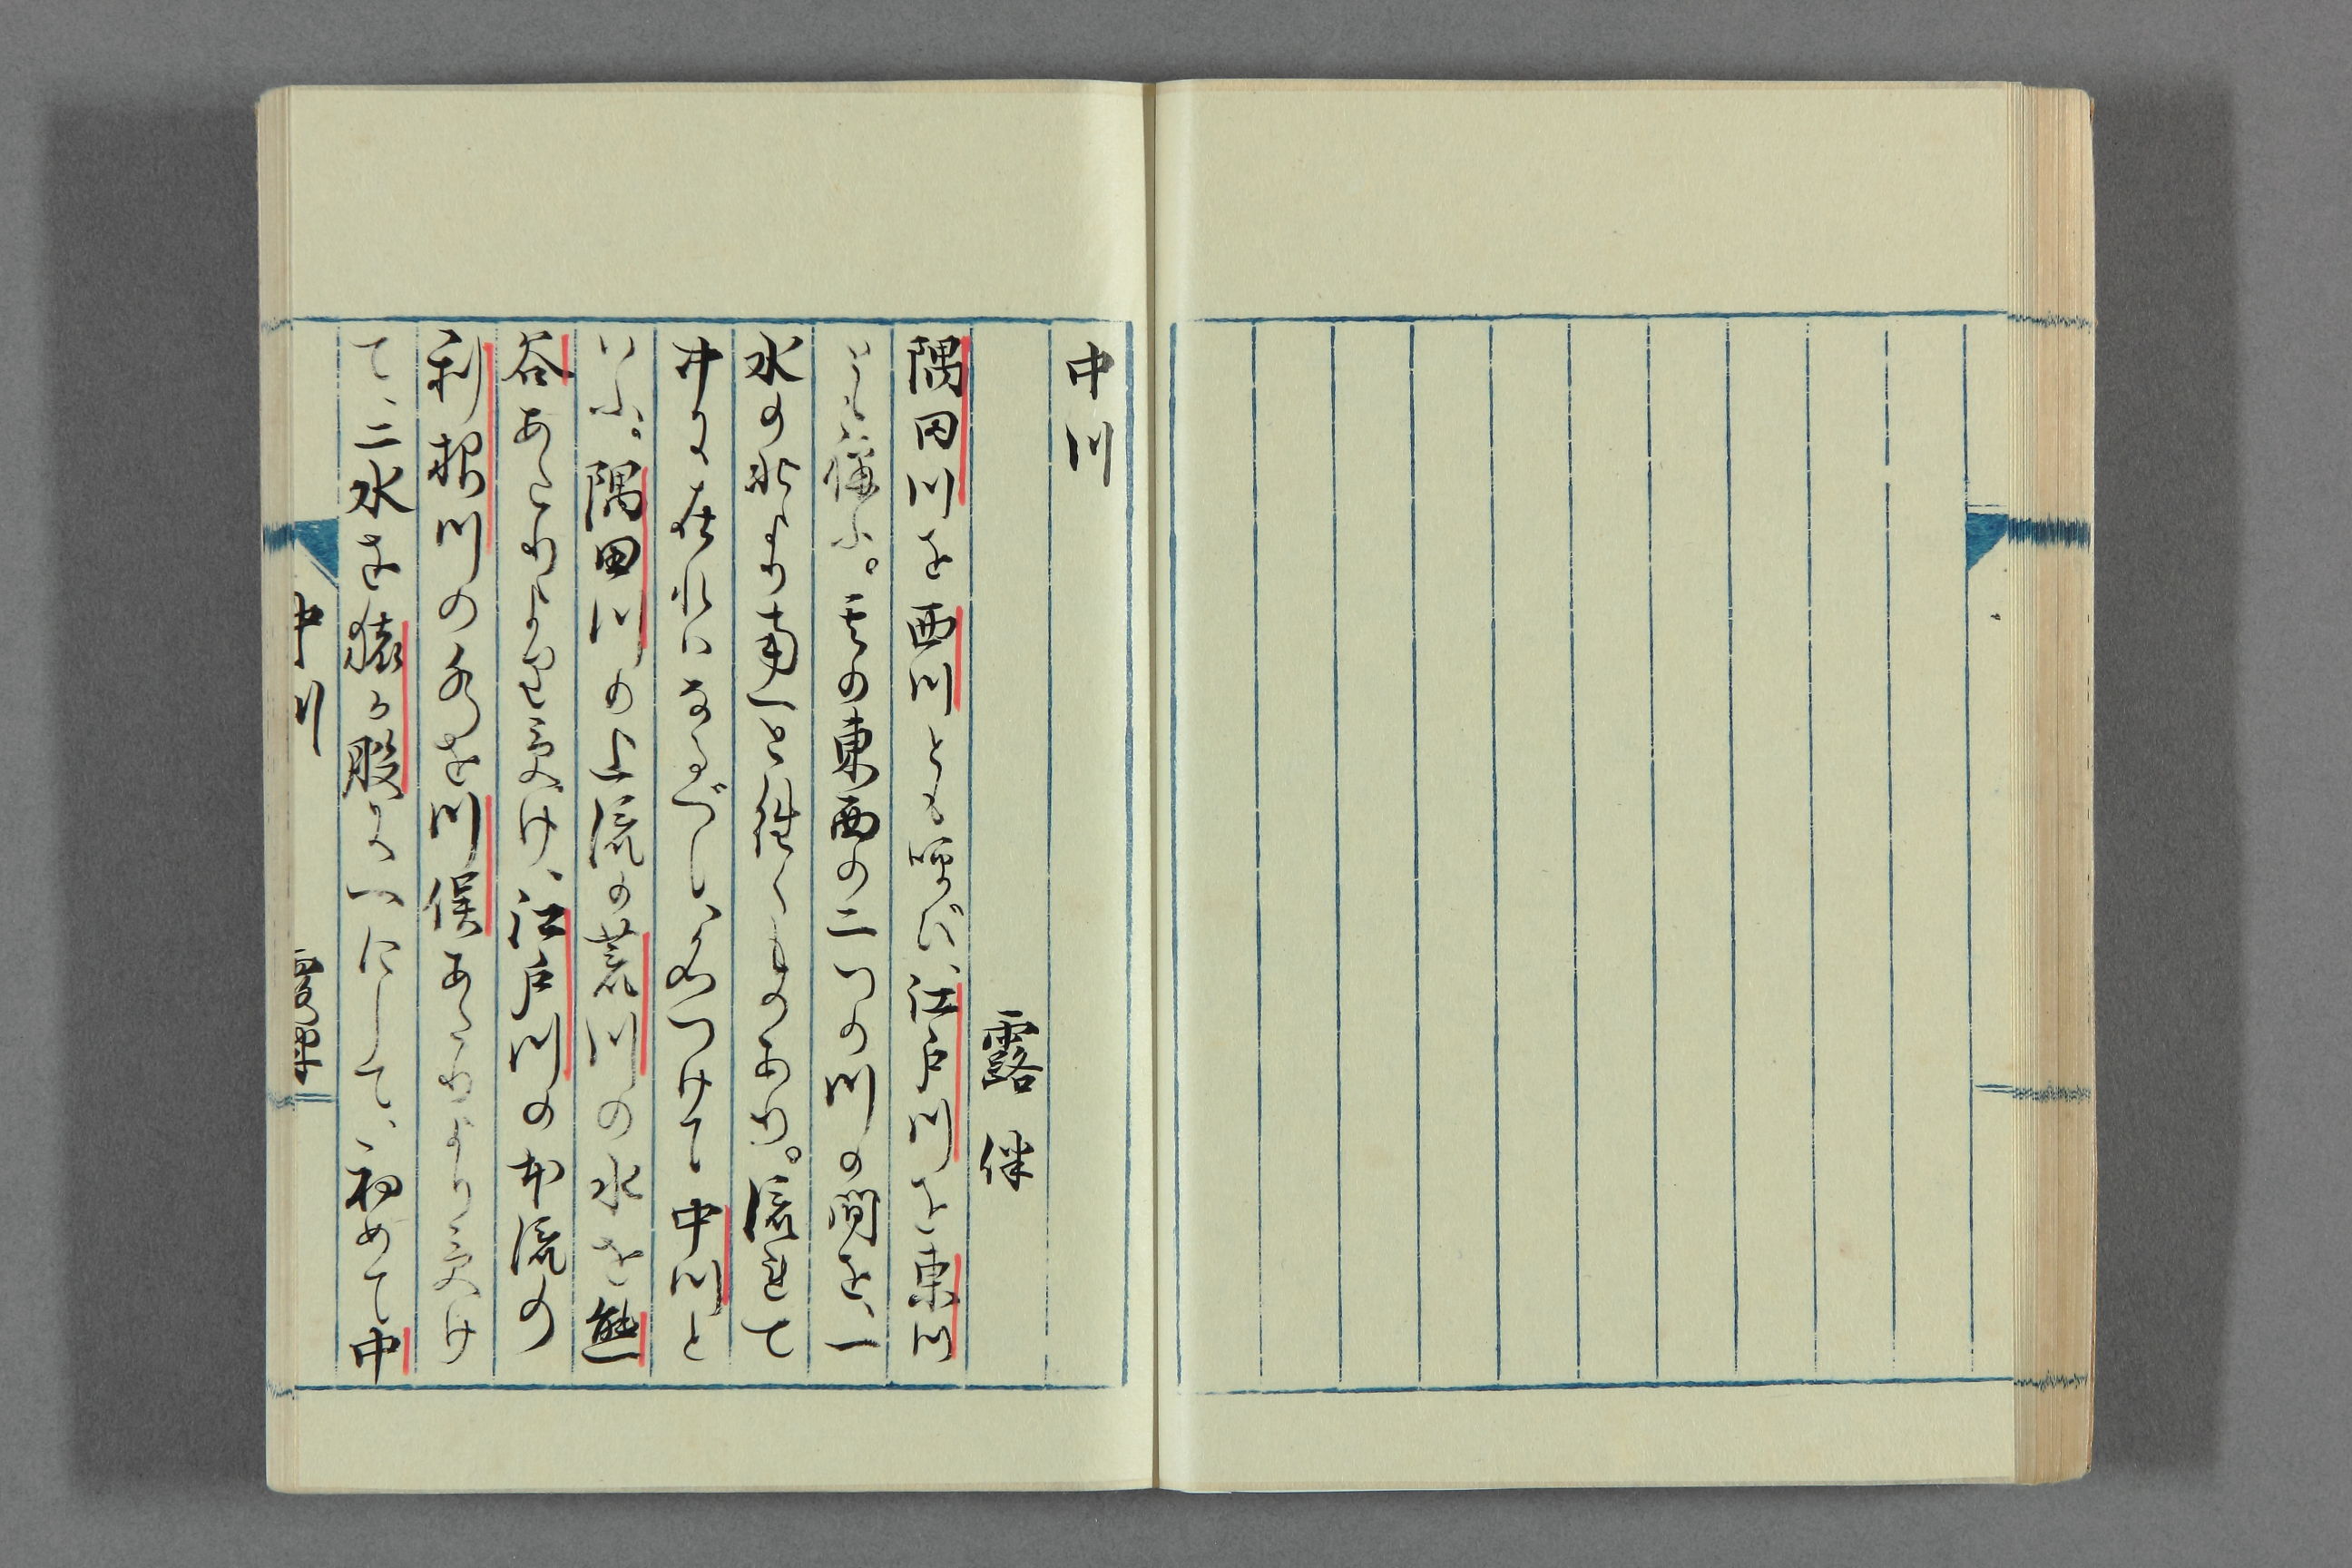 中川
露伴
隅田川を西川とも呼び、江戸川を東川
とも称ふ。其の東西の二つの川の間を、一
水の北より南へと流くものあり。流れて
中に在れはなるべし、名づけて中川と
いふ。隅田川の上流の荒川の水を熊
谷あたりより受け、江戸川の本流の
利根川の水を川俣あたりより受け
て、二水を猿が股に一にして、初めて中
中川
露伴